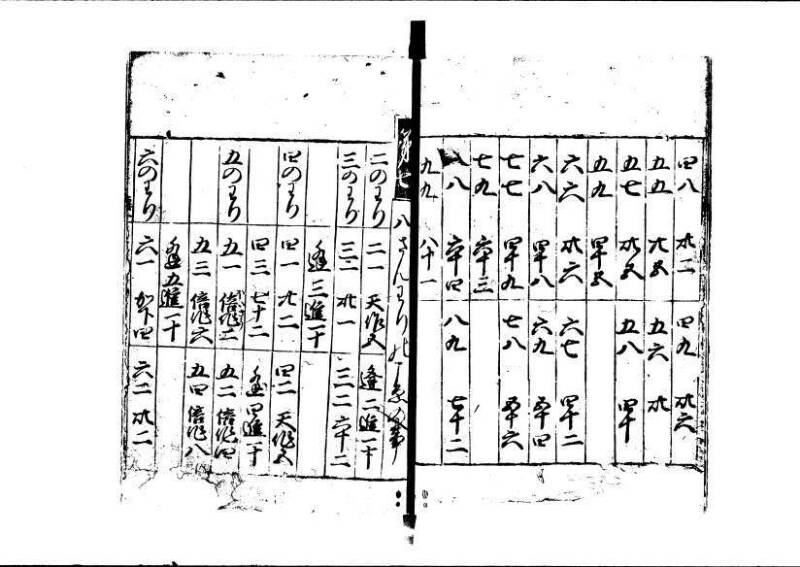 四八 卅二 四九 卅六
五五 廿五 五六 卅
五七 卅五 五八 四十
五九 四十五
六六 卅六 六七 四十二
六八 四十八 六九 五十四
七七 四十九 七八 五十六
七九 六十三
八八 六十四 八九 七十二
九九 八十一
第七 八さんわりの こゑの事
二のわり 二一 天作五 逢二進一十
三のわり 三一 卅一 三二 六十二
逢三進一十
四のわり 四一 廿二 四二 天作五
四三 七十二 逢四進一十
五のわり 五一 倍作二 五二 倍作四
五三 倍作六 五四 倍作八
逢五進一十
六のわり 六一 加下四 六二 卅二